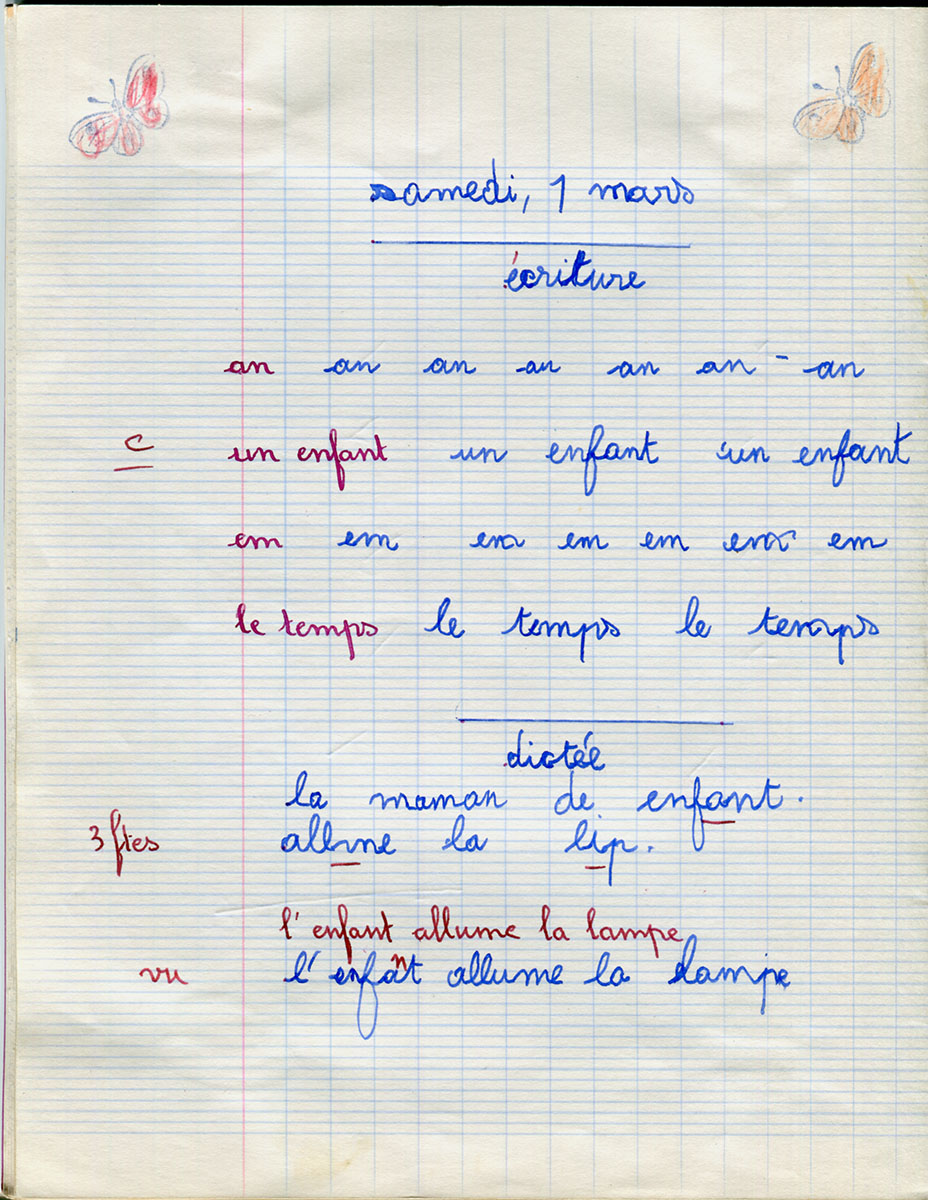 samedi, 1 mars
écriture
an an an an an an - an
c un enfant un enfant un enfant
em em em em em em em
le temps le temps le temps
dictée
la maman de enfant.
3 ftes allume la lip.
l'enfant allume la lampe
vu l'enfant allume la lampe